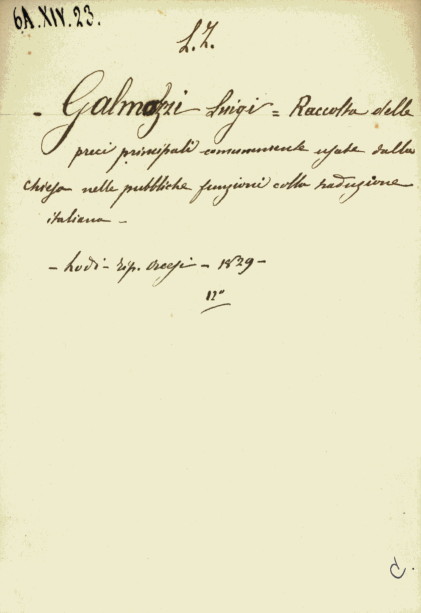 6A.XIV.23.
L.Z.
- Galmozzi Luigi = Raccolta delle
preci principali comunemente usate dalla
Chiesa nelle pubbliche funzioni colla traduzione
italiana -
- Lodi - tip. Orcesi - 1829 -
12°
C.